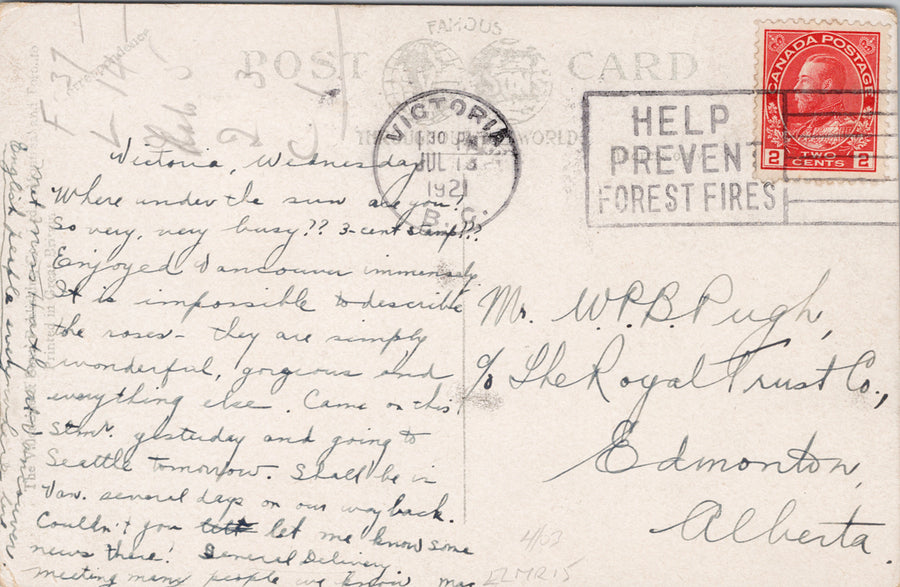 FAMOUS
POST CARD
THROUGHOUT THE WORLD
F 37
VICTORIA
30 PM
JUL 13
1921
B.C.
HELP
PREVENT
FOREST FIRES
CANADA POSTAGE
2 TWO CENTS 2
Victoria, Wednesday
Where under the sun are you!
So very, very busy?? 3-cent stamp???
Enjoyed Vancouver immensely.
It is impossible to describe
the roses - they are simply
wonderful, gorgeous and
everything else. Came on this
Stmr. yesterday and going to
Seattle tomorrow. Shall be in
Van. several days on our way back.
Couldn't you let me know some
news there! General Delivery
meeting many people we know
English people everywhere
Mr. W.P.B. Pugh,
c/o The Royal Trust Co.,
Edmonton,
Alberta.
4/03
EZMR15